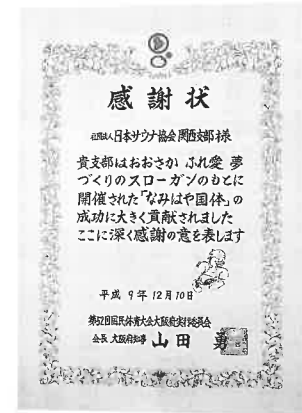 感謝状
社団法人日本サウナ協会関西支部様
貴支部はおおさか ふれ愛 夢
づくりのスローガンのもとに
開催された「なみはや国体」の
成功に大きく貢献されました
ここに深く感謝の意を表します
平成 9年12月10日
第52回国民体育大会大阪府実行委員会
会長 大阪府知事 山田 勇